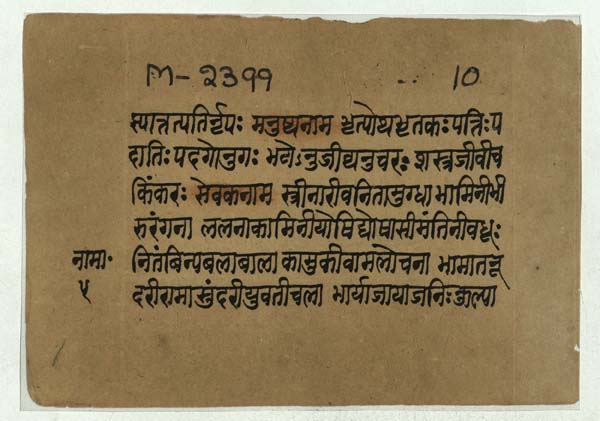 M-2399 10
स्यात्तत्पतिर्नृपः मनुष्यनाम भृत्योथभृतकःपत्तिःप
दातिः पदगोनुगः भटोऽनुजीव्यनुचरः शस्त्रजीवीच
किंकरः सेवकनाम स्त्रीनारीवनितामुग्धा भामिनीभी
रुरंगना ललनाकामिनीयोषिद्योषासीमंतिनीवधूः
नामा॰ नितंबिन्यबलाबाला कामुकीवामलोचना भामातनू
५ दरीरामासुंदरीयुवतीचला भार्याजायाजनिःकुल्या